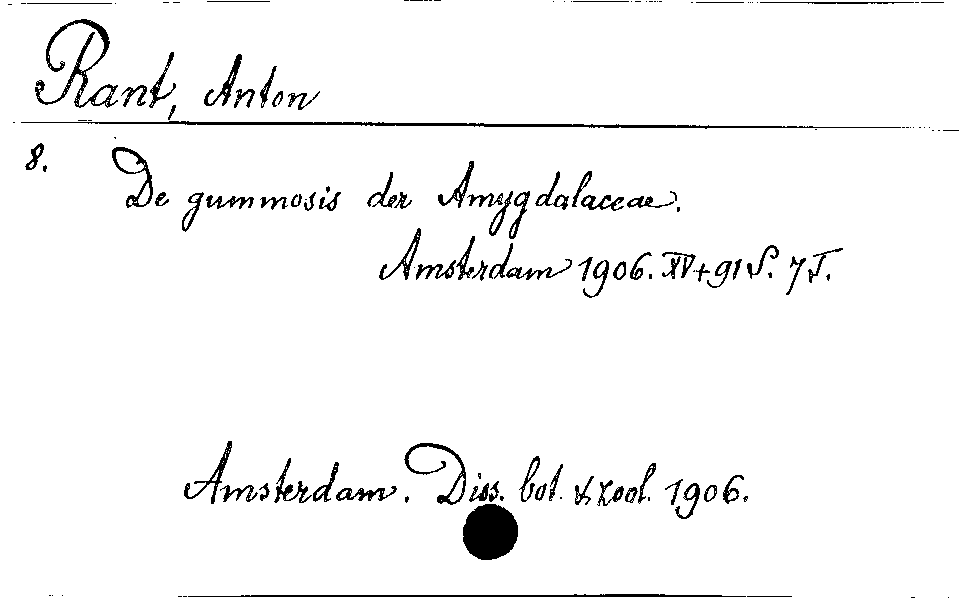 Rant, Anton
8. De gummosis der Amygdalaceae.
Amsterdam 1906. XV+91 S. 7 T.
Amsterdam. Diss. bot. & zool. 1906.